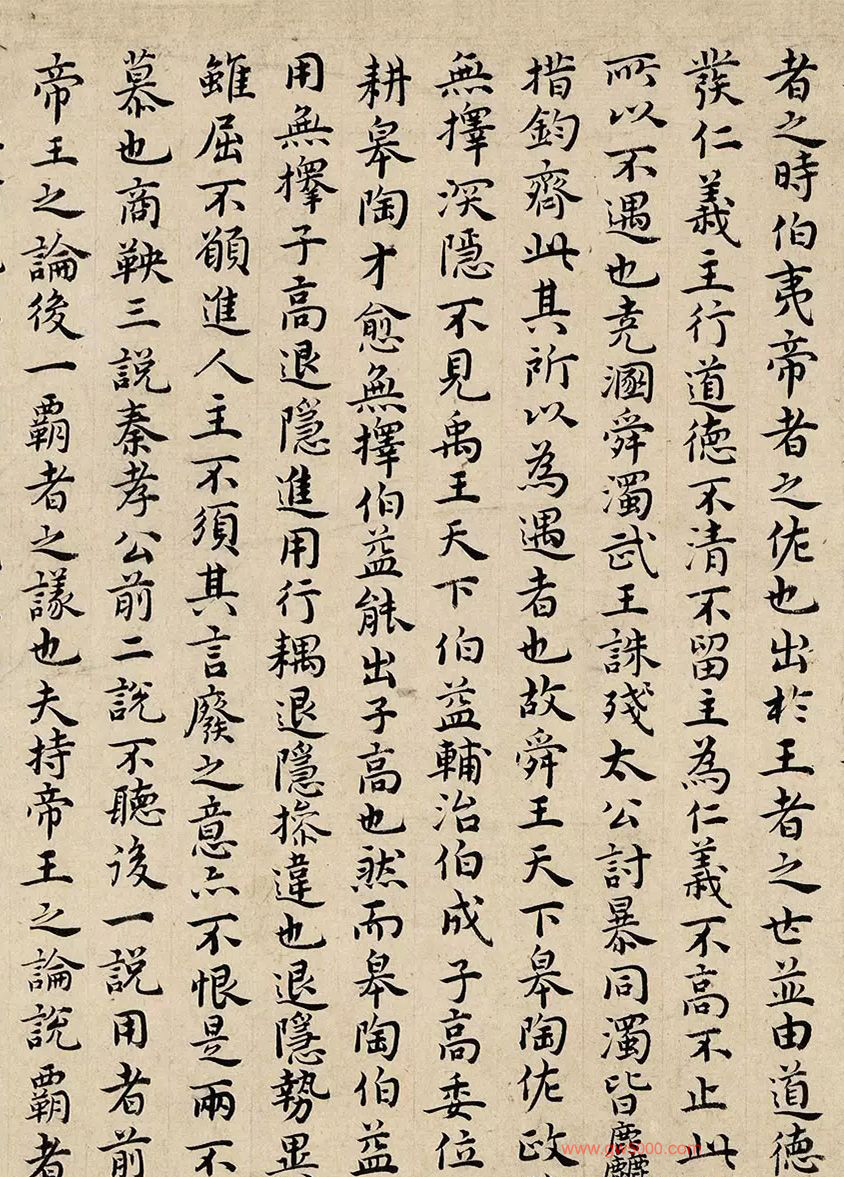 者之時伯夷帝者之佐也出於王者之世並由道德
發仁義主行道德不清不留主為仁義不高不止此
所以不遇也堯溷舜濁武王誅殘太公討暴同濁皆麤
措鈞齊此其所以為遇者也故舜王天下皋陶佐政
無擇深隱不見禹王天下伯益輔治伯成子高委位
耕皋陶才愈無擇伯益能出子高也然而皋陶伯益
用無擇子高退隱進用行耦退隱操違也退隱勢異
雖屈不願進人主不須其言廢之意亦不恨是兩不
慕也商鞅三說秦孝公前二說不聽後一說用者前
帝王之論後一霸者之議也夫持帝王之論說霸者
www.gw5000.com